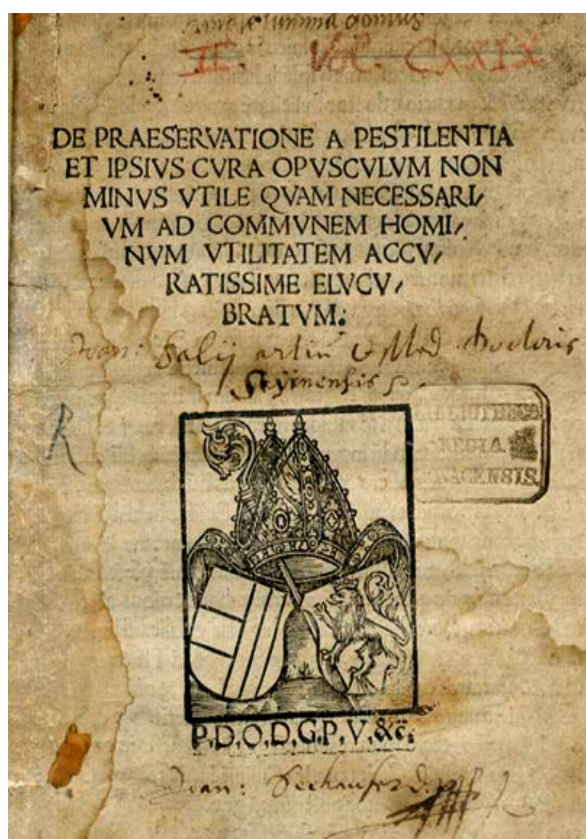 II. Vol. CXXIX
DE PRAESERVATIONE A PESTILENTIA
ET IPSIVS CVRA OPVSCVLVM NON
MINVS VTILE QVAM NECESSARI/
VM AD COMMVNEM HOMI/
NVM VTILITATEM ACCV/
RATISSIME ELVCV/
BRATVM:
Joan: Salij artiũ & Med Doctoris
BIBLIOTHECA
REGIA
MONACENSIS
R
P.D.O.D.G.P.V.&c̃.
Joan: